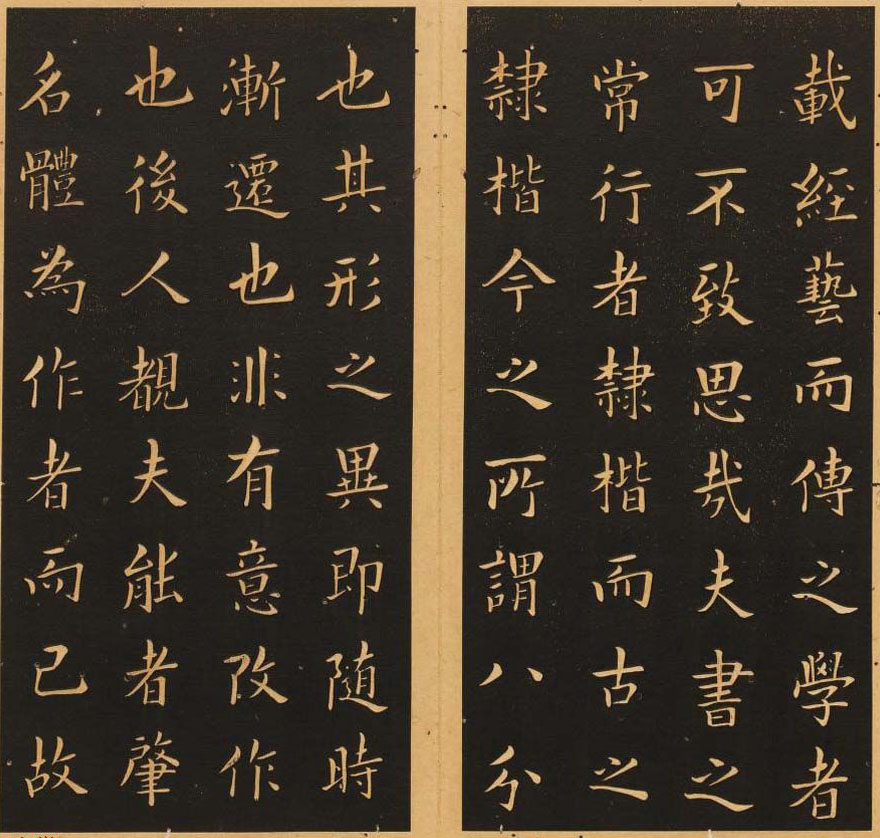 載經藝而傳之學者
可不致思哉夫書之
常行者隸楷而古之
隸楷今之所謂八分
也其形之異即随時
漸遷也非有意改作
也後人覩夫能者肇
名體為作者而已故